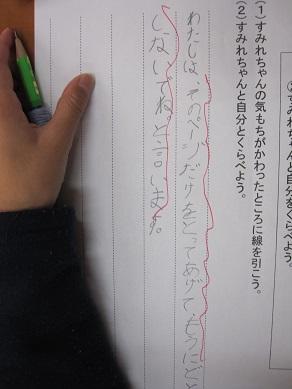 すみれちゃんと自分をくらべよう。
(1) すみれちゃんの気もちがかわったところに線を引こう。
(2) すみれちゃんと自分とくらべよう。
わたしは、そのページだけをとってあげて、もうにどと
しないでね。と言います。